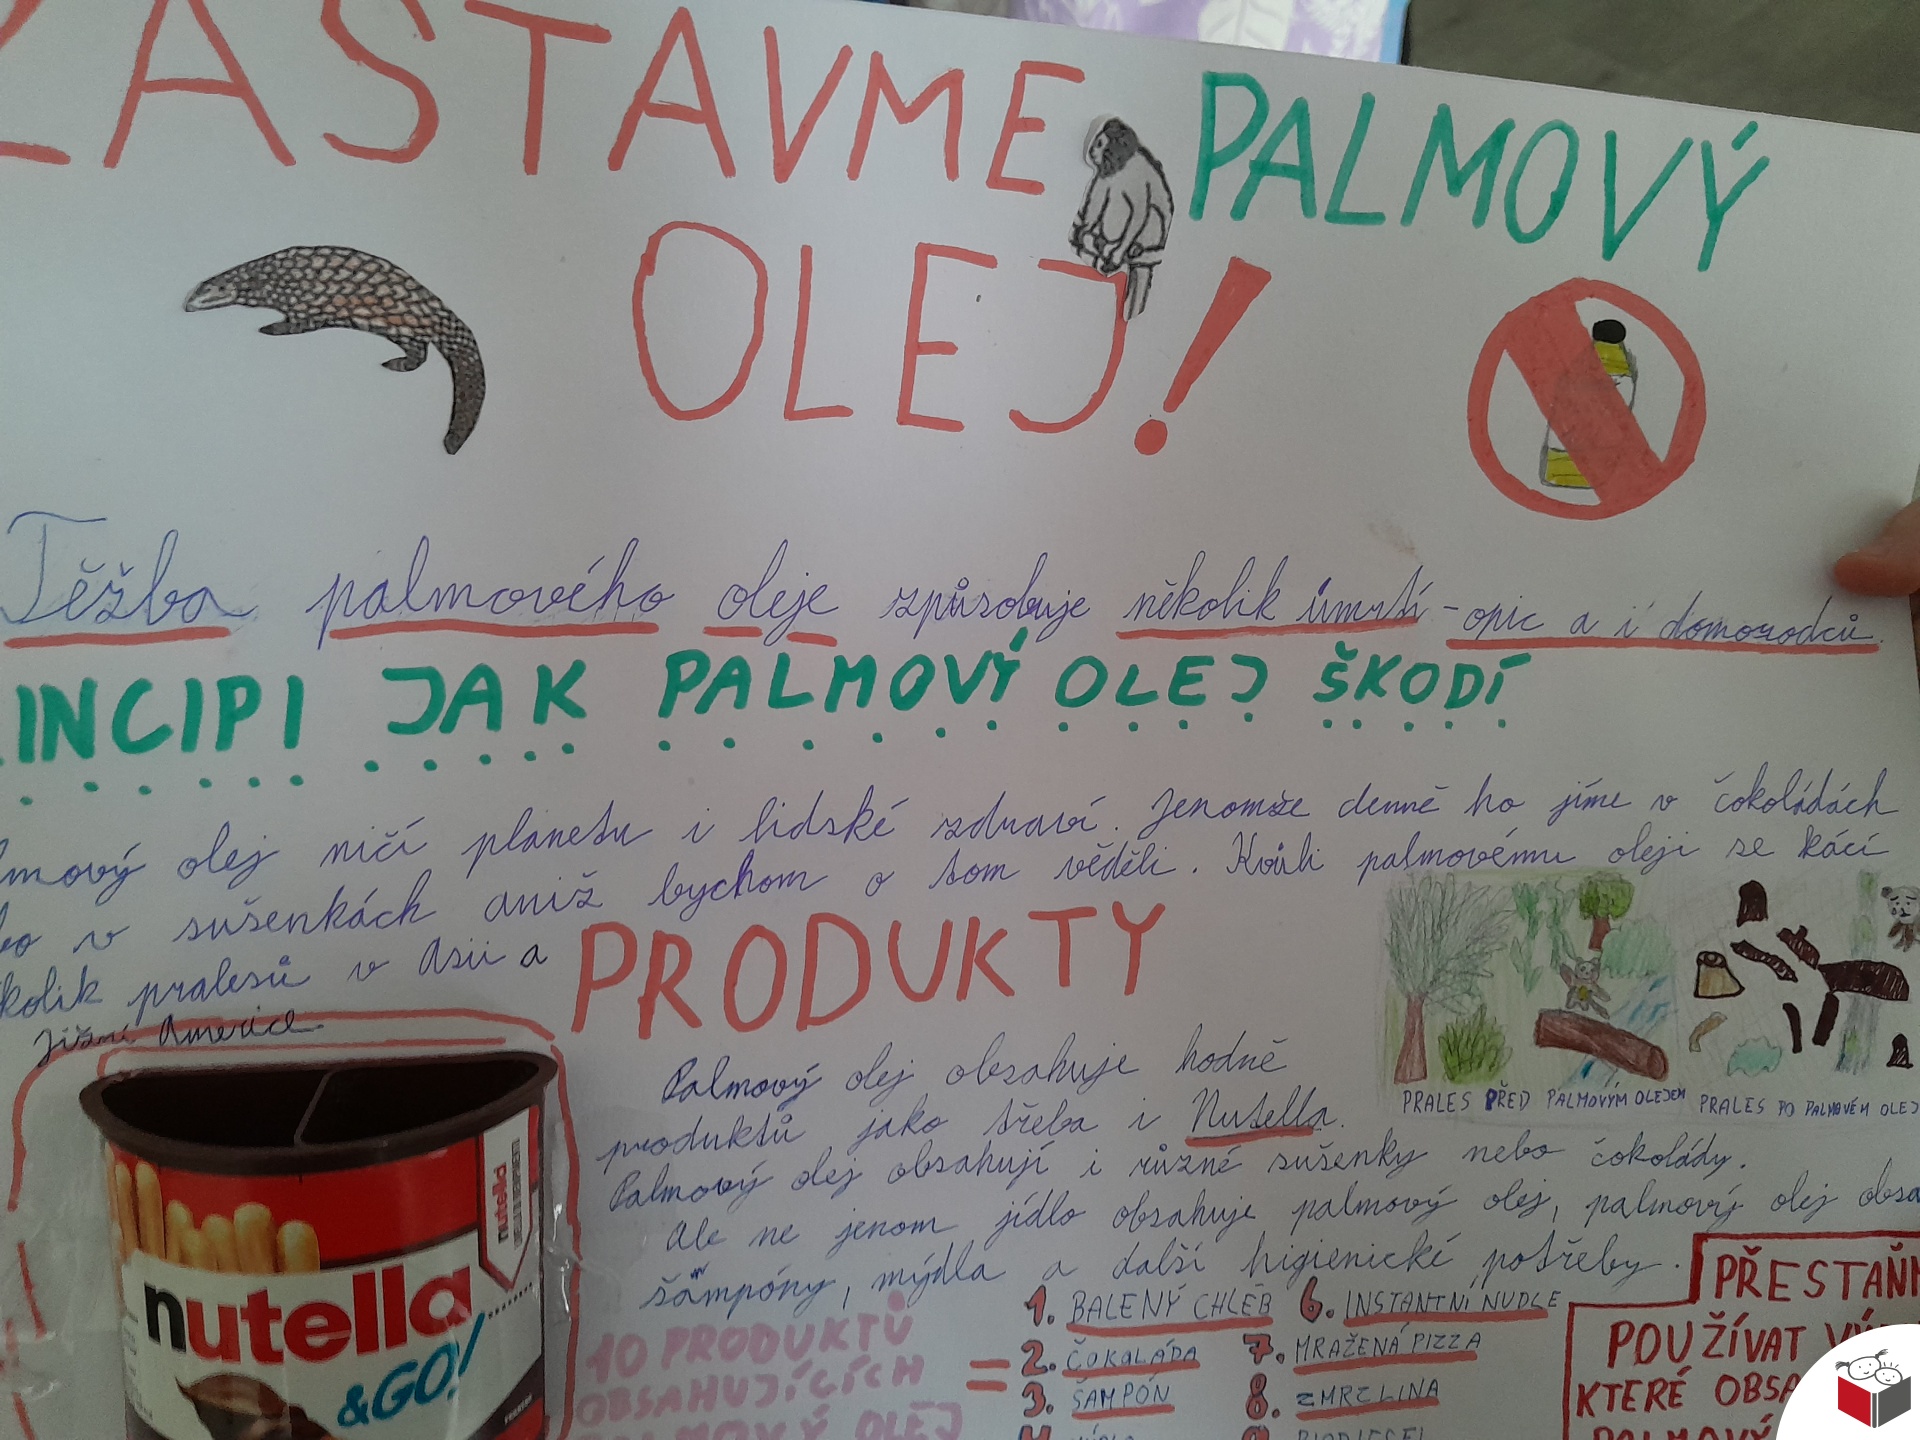 ZASTAVME PALMOVÝ
OLEJ!
Těžba palmového oleje způsobuje několik úmrtí - opic a i domorodců.
INCIPI JAK PALMOVÝ OLEJ ŠKODÍ
lmový olej ničí planetu i lidské zdraví. Jenomže denně ho jíme v čokoládách
bo v sušenkách aniž bychom o tom věděli. Kvůli palmovému oleji se kácí
kolik pralesů v Asii a
Jižní Americe
PRODUKTY
Palmový olej obsahuje hodně
produktů jako třeba i Nutella.
Palmový olej obsahují i různé sušenky nebo čokolády.
Ale ne jenom jídlo obsahuje palmový olej, palmový olej obsa
šampóny, mýdla a další higienické potřeby.
PRALES PŘED PALMOVÝM OLEJEM
PRALES PO PALMOVÉM OLEJ
nutella
&GO!
nutella
10 PRODUKTŮ
OBSAHUJÍCÍCH
PALMOVÝ OLEJ
=
1. BALENÝ CHLÉB
2. ČOKOLÁDA
3. ŠAMPÓN
6. INSTANTNÍ NUDLE
7. MRAŽENÁ PIZZA
8. ZMRZLINA
9. BIODIESEL
PŘESTAŇM
POUŽÍVAT VÝ
KTERÉ OBSA
PALMOVÝ